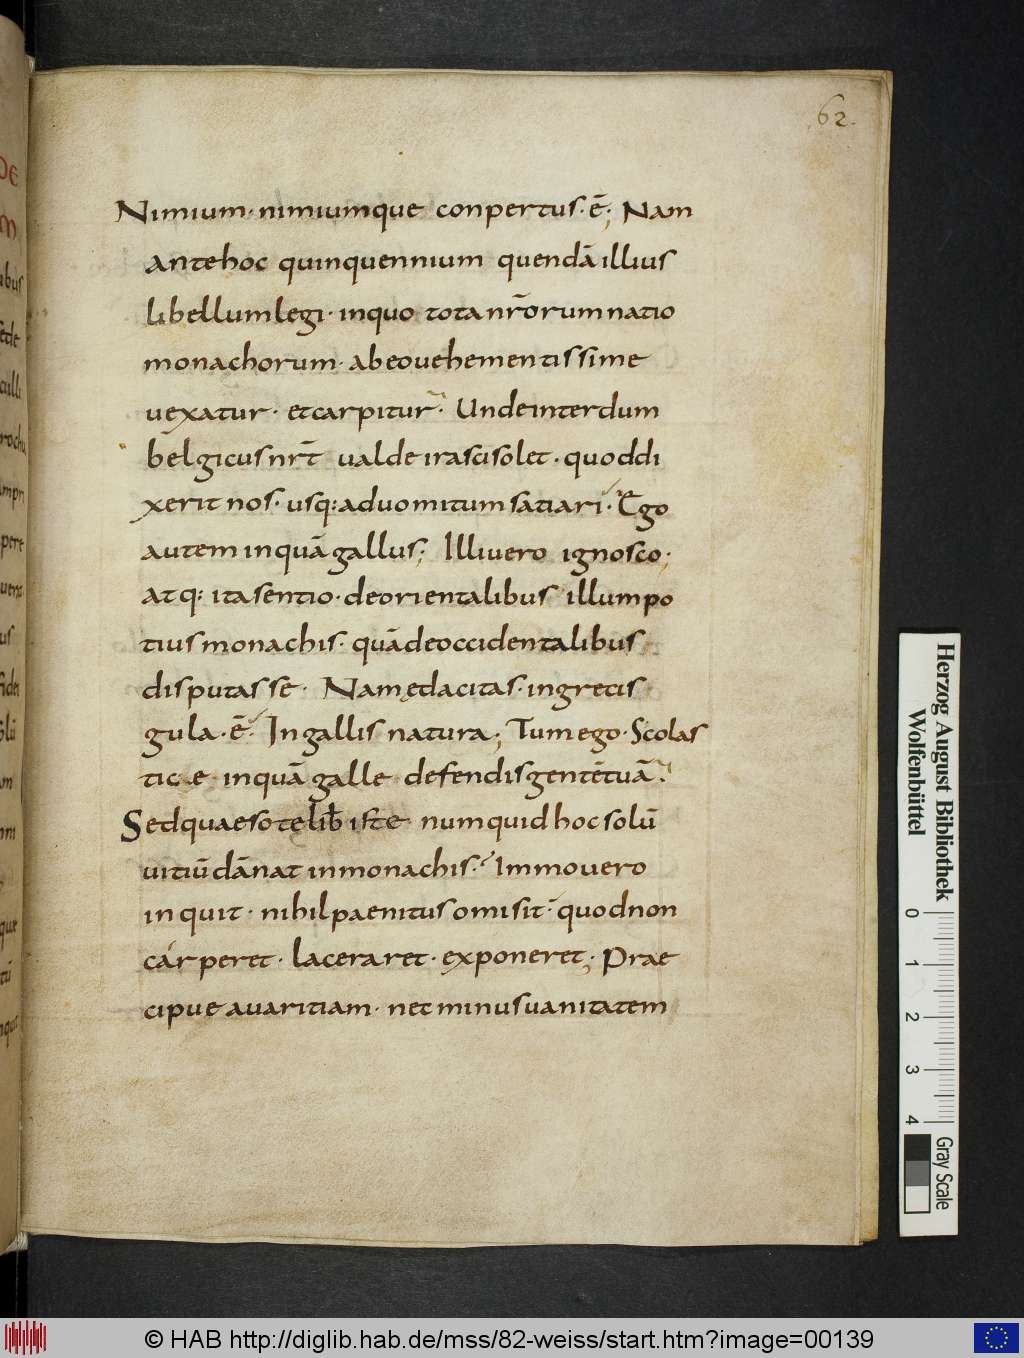 62.
Nimium· nimiumque conpertus· ē; Nam
ante hoc quinquennium quendā illius
libellum legi· in quo tota nr̄orum natio
monachorum· ab eo uehementissime
uexatur· et carpitur· Unde interdum
belgicus nr̄t ualde irasci solet· quod di
xerit nos· usq: ad uomitum satiari· Ego
autem inquā gallus; Illi uero ignosco;
atq: ita sentio· de orientalibus illum po
tius monachis· quā de occidentalibus
disputasse· Nam ędacitas· in grecis
gula· ē· In gallis natura; Tum ego· Scolas
tice inquā galle defendis gentē tuā·
Sed quaeso te lib̄ iste numquid hoc solū
uitiū dānat in monachis·? Immo uero
inquit· nihil paenitus omisit· quod non
carperet· laceraret· exponeret; Prae
cipue auaritiam· net minus uanitatem
Herzog August Bibliothek
Wolfenbüttel
0 1 2 3 4
Gray Scale
© HAB http://diglib.hab.de/mss/82-weiss/start.htm?image=00139